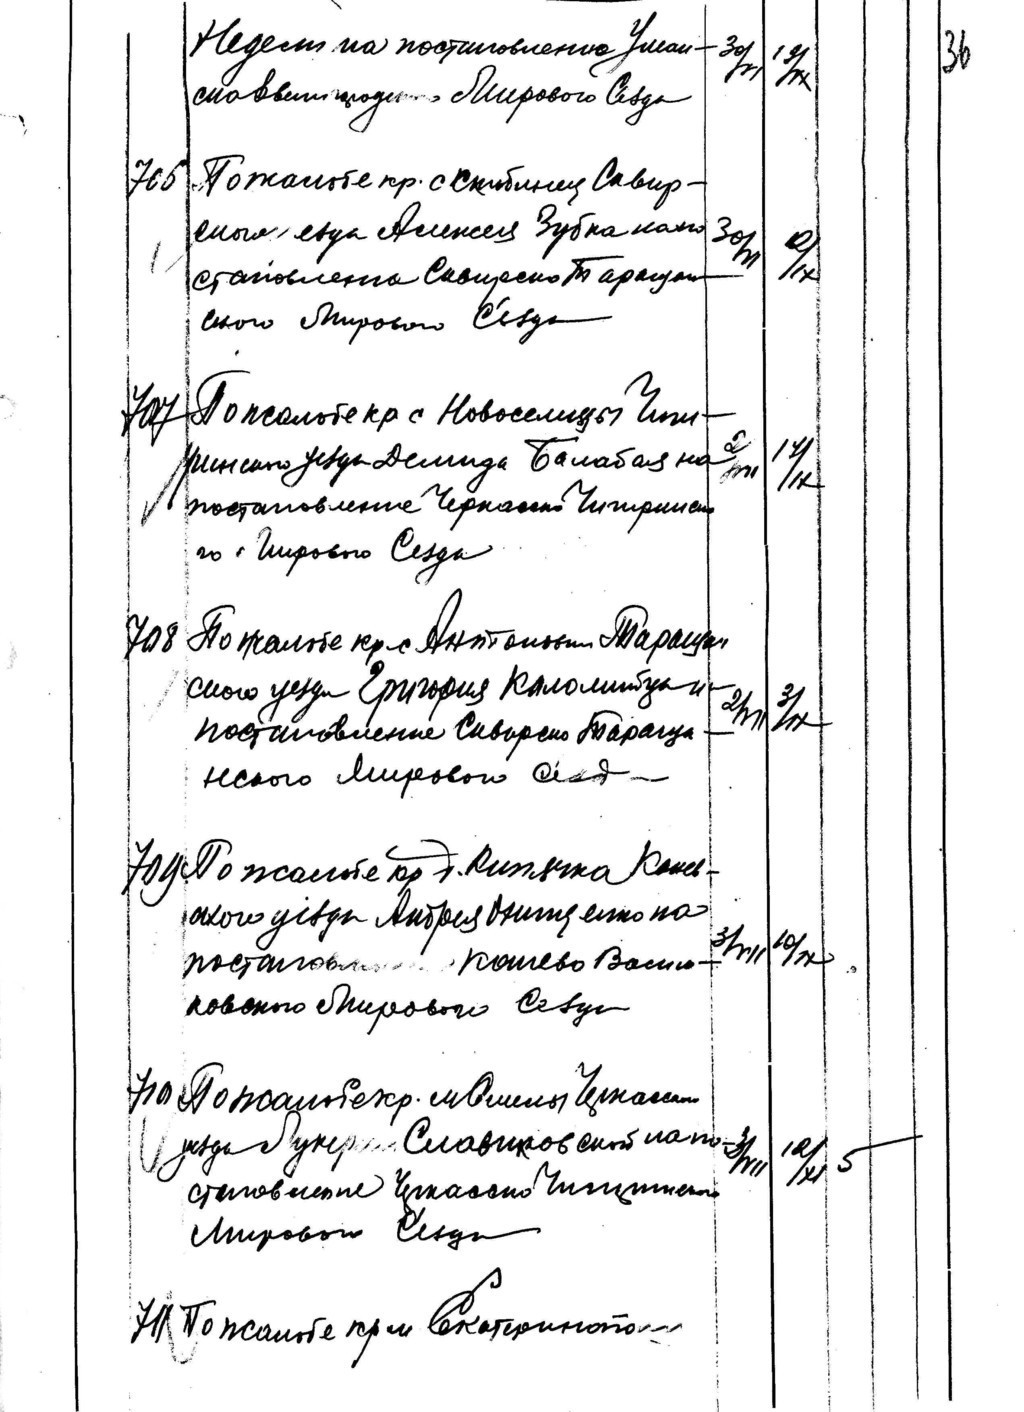 36
Недели на постановление Уман-
ско Звенигород Мирового Съезда
30/VI
19/IX
706 По жалобе кр. с Скибинец Сквир-
ского уезда Алексея Зубка на по
становление Сквирско Таращан
ского Мирового Съезда
30/VI
10/IX
707 По жалобе кр с Новоселицы Чиги-
ринского уезда Демида Балабая на
постановление Черкасско Чигиринско
го Мирового Съезда
2/VII
17/IX
708 По жалобе кр с Антоновки Таращан
ского уезда Григория на
постановление Сквирско Тараща
нского Мирового Съезд
2/VII
3/IX
709 По жалобе кр Канев-
ского уезда Андрея Онищенко на
постановл Канево Василь-
ковского Мирового Съезда
3/VII
10/IX
710 По жалобе кр. м Смелы Черкасского
уезда Лукер Славиковской на по-
становление Черкасско Чигиринского
Мирового Съезда
3/VII
10/XI
5
711 По жалобе кр м Екатеринопо